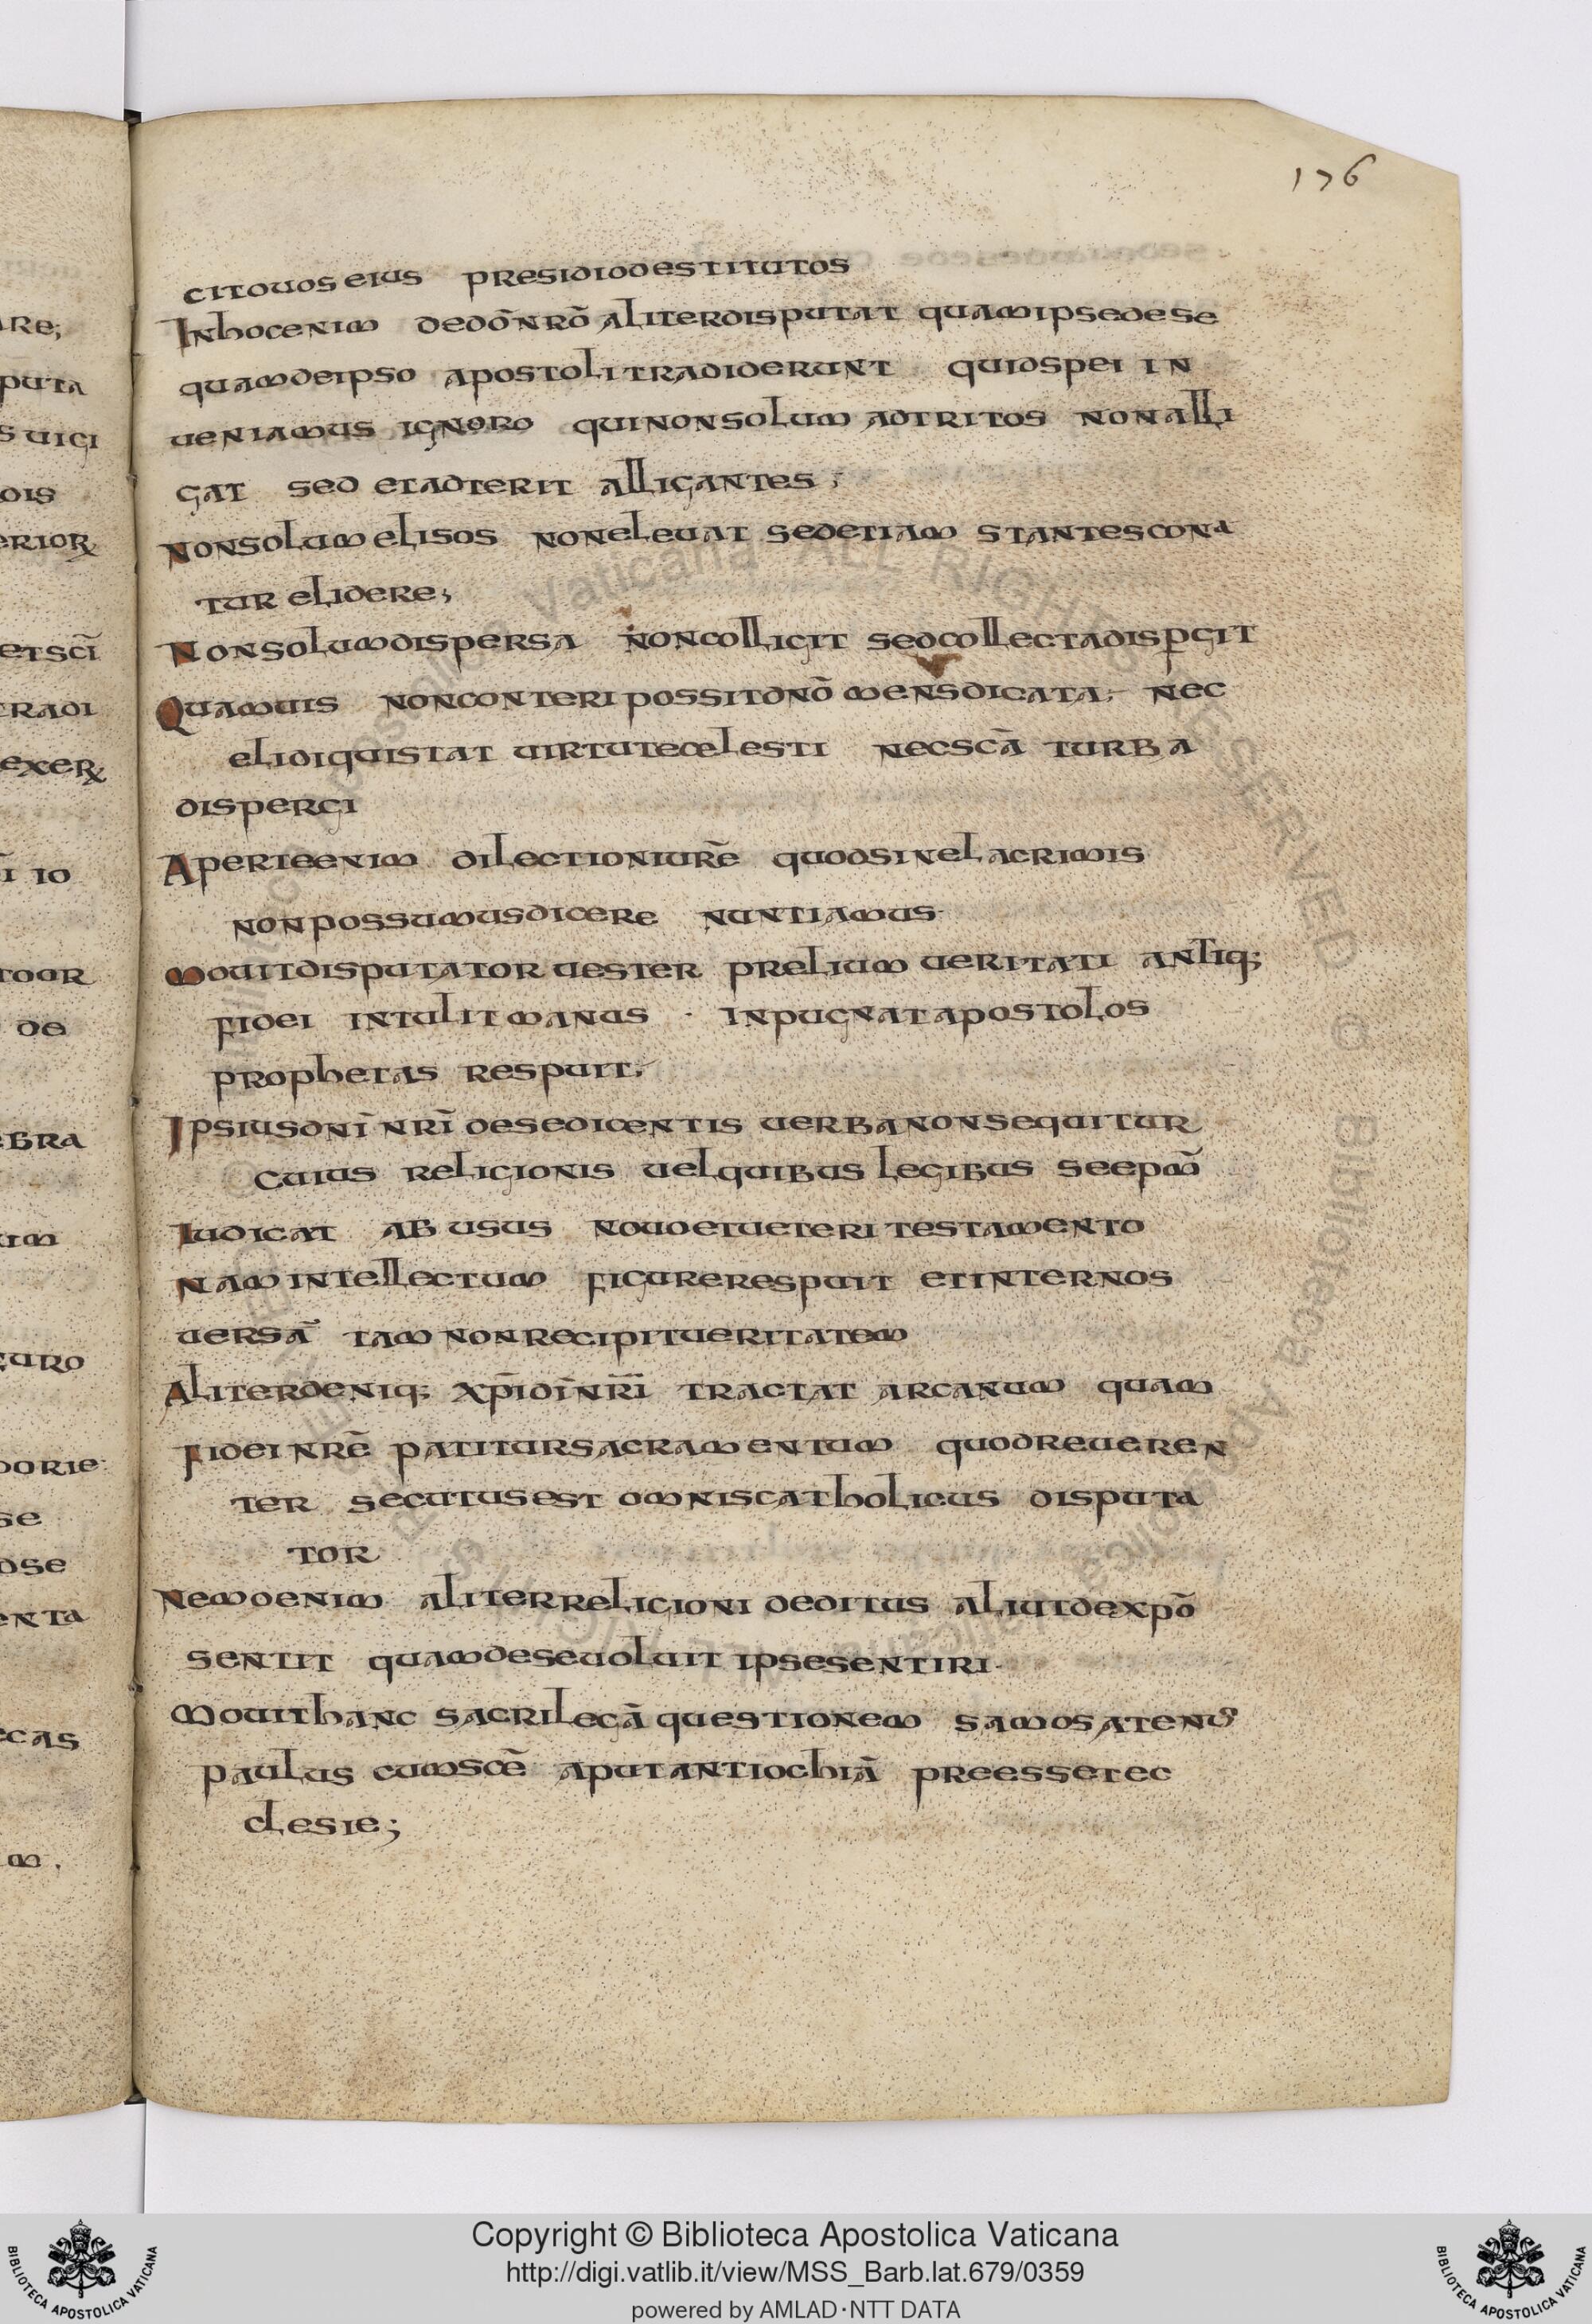 176
citouos eius presidiodestitutos
Inhocenim dedo͞nro͞ aliterdisputat quamipsedese
quamdeipso apostolitradiderunt quidspei in
ueniamus ignoro quinonsolum adtritos nonalli
gat sed etadterit alligantes;
Nonsolumelisos noneleuat sedetiam stantescona
tur elidere;
Nonsolumdispersa noncolligit sedcollectadispgit
Quamuis nonconteri possitdno͞ mensdicata; nec
elidiquistat uirtutecelesti necsca͞ turba
dispergi
Aperteenim dilectioniure͞ quodsinelacrimis
nonpossumusdicere nuntiamus.
mouitdisputator uester prelium ueritati antiq;
fidei intulitmanus · Inpugnatapostolos
prophetas respuit;
Ipsiusdni͞ nri͞ desedicentis uerbanonsequitur
cuius religionis uelquibus legibus seepm͞
Iudicat abusus nouoetueteri testamento
namintellectum figurerespuit etinternos
uersa͞ tam nonrecipitueritatem
Aliterdeniq; xp͞idi͞nri͞ tractat arcanum quam
fidei nre͞ patitursacramentum quodreueren
ter secutusest omniscatholicus disputa
tor
Nemoenim aliterreligioni deditus aliutdexpo͞
sentit quamdeseuoluit ipsesentiri.
mouithanc sacrilega͞ questionem samosatenus
paulus cumsce͞ aputantiochia͞ preessetec
clesie;
re;
puta
s uigi
ois
erior
etsci͞
tradi
exer
i͞ io
de
ebra
im
curo
dorie
se
ose
enta
ecas
m.
Copyright © Biblioteca Apostolica Vaticana
http://digi.vatlib.it/view/MSS_Barb.lat.679/0359
powered by AMLAD·NTT DATA
BIBLIOTECA APOSTOLICA VATICANA
BIBLIOTECA APOSTOLICA VATICANA